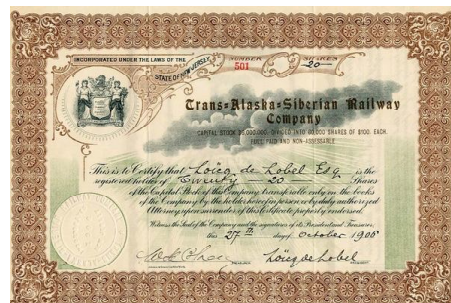 INCORPORATED UNDER THE LAWS OF THE
STATE OF NEW JERSEY.
NUMBER
501
SHARES
20
Trans-Alaska-Siberian Railway
Company
CAPITAL STOCK $6,000,000. DIVIDED INTO 60,000 SHARES OF $100. EACH.
FULL PAID AND NON-ASSESSABLE
This is to Certify that Loïcq de Lobel Esq. is the
registered holder of Twenty 20 Shares
of the Capital Stock of this Company, transferable only on the books
of the Company by the holder hereof in person or by duly authorized
Attorney upon surrender of this Certificate properly endorsed.
Witness the Seal of the Company and the signatures of its President and Treasurer,
this 27th day of October 1905
Loïcq de Lobel